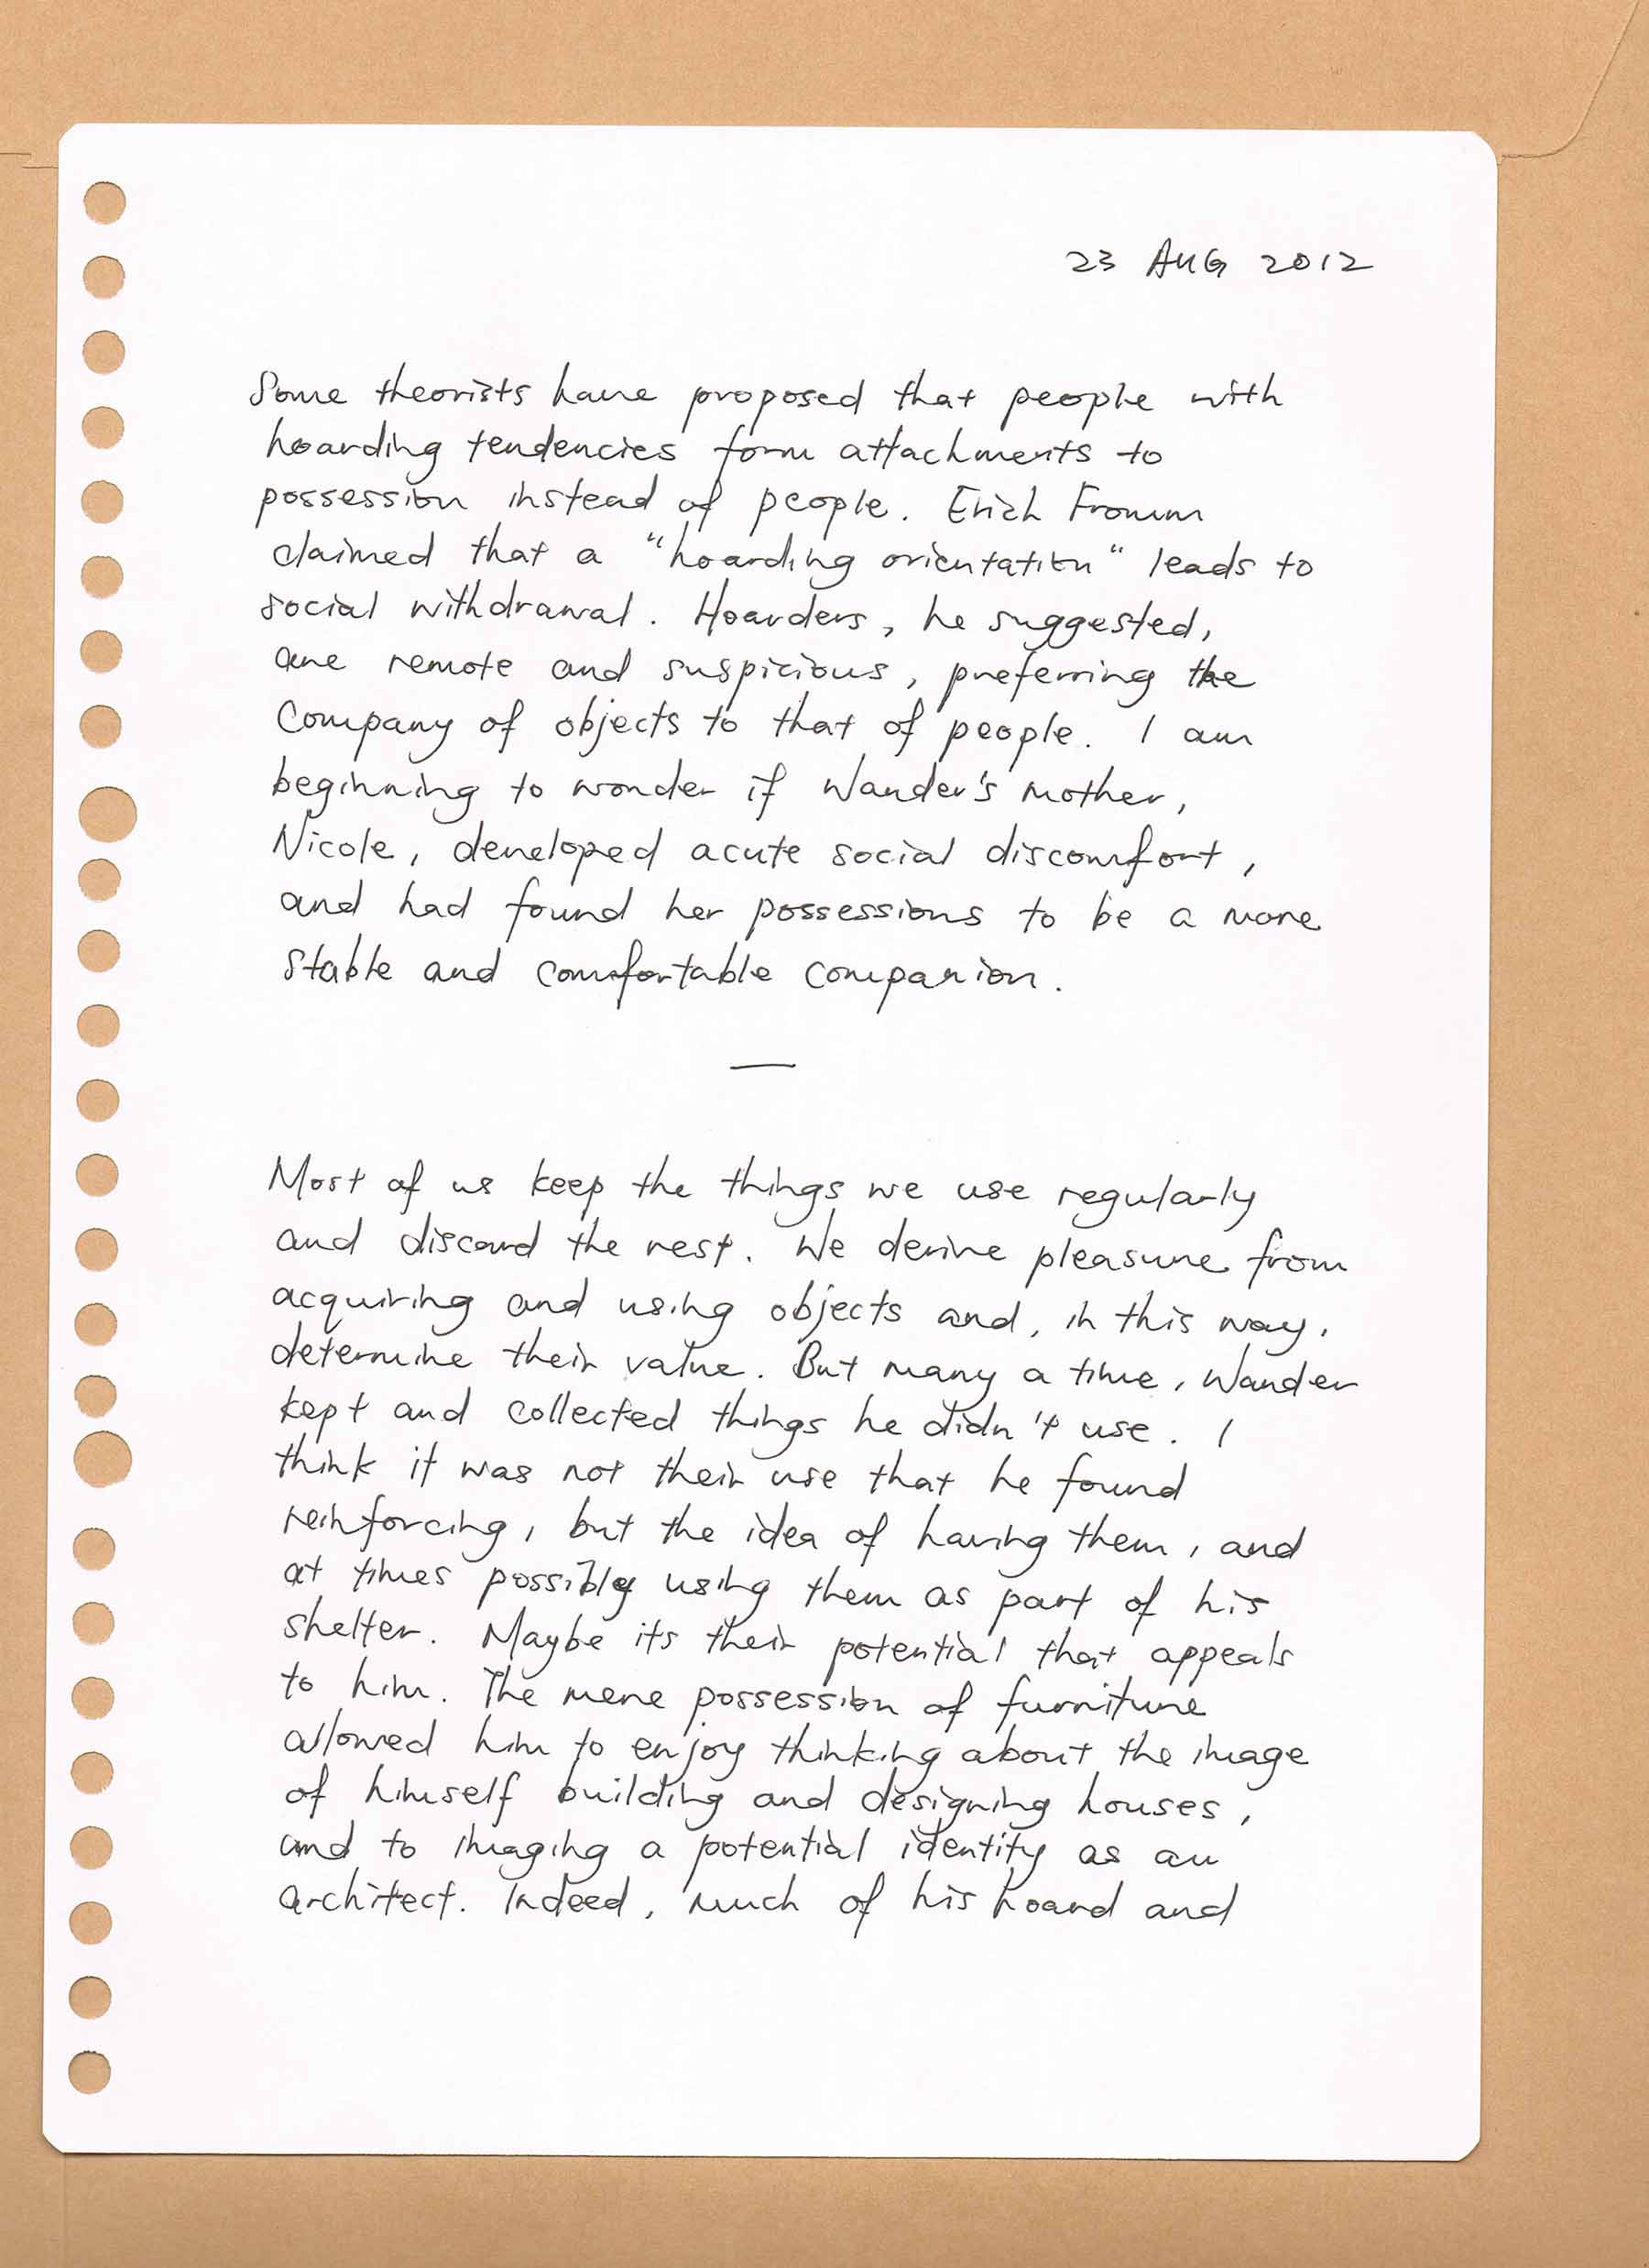 23 AUG 2012
Some theorists have proposed that people with
hoarding tendencies form attachments to
possession instead of people. Erich Fromm
claimed that a "hoarding orientation" leads to
social withdrawal. Hoarders, he suggested,
are remote and suspicious, preferring the
company of objects to that of people. I am
beginning to wonder if Wander's mother,
Nicole, developed acute social discomfort,
and had found her possessions to be a more
stable and comfortable companion.
—
Most of us keep the things we use regularly
and discard the rest. We derive pleasure from
acquiring and using objects and, in this way,
determine their value. But many a time, Wander
kept and collected things he didn't use. I
think it was not their use that he found
reinforcing, but the idea of having them, and
at times possibly using them as part of his
shelter. Maybe its their potential that appeals
to him. The mere possession of furniture
allowed him to enjoy thinking about the image
of himself building and designing houses,
and to imaging a potential identity as an
architect. Indeed, much of his hoard and